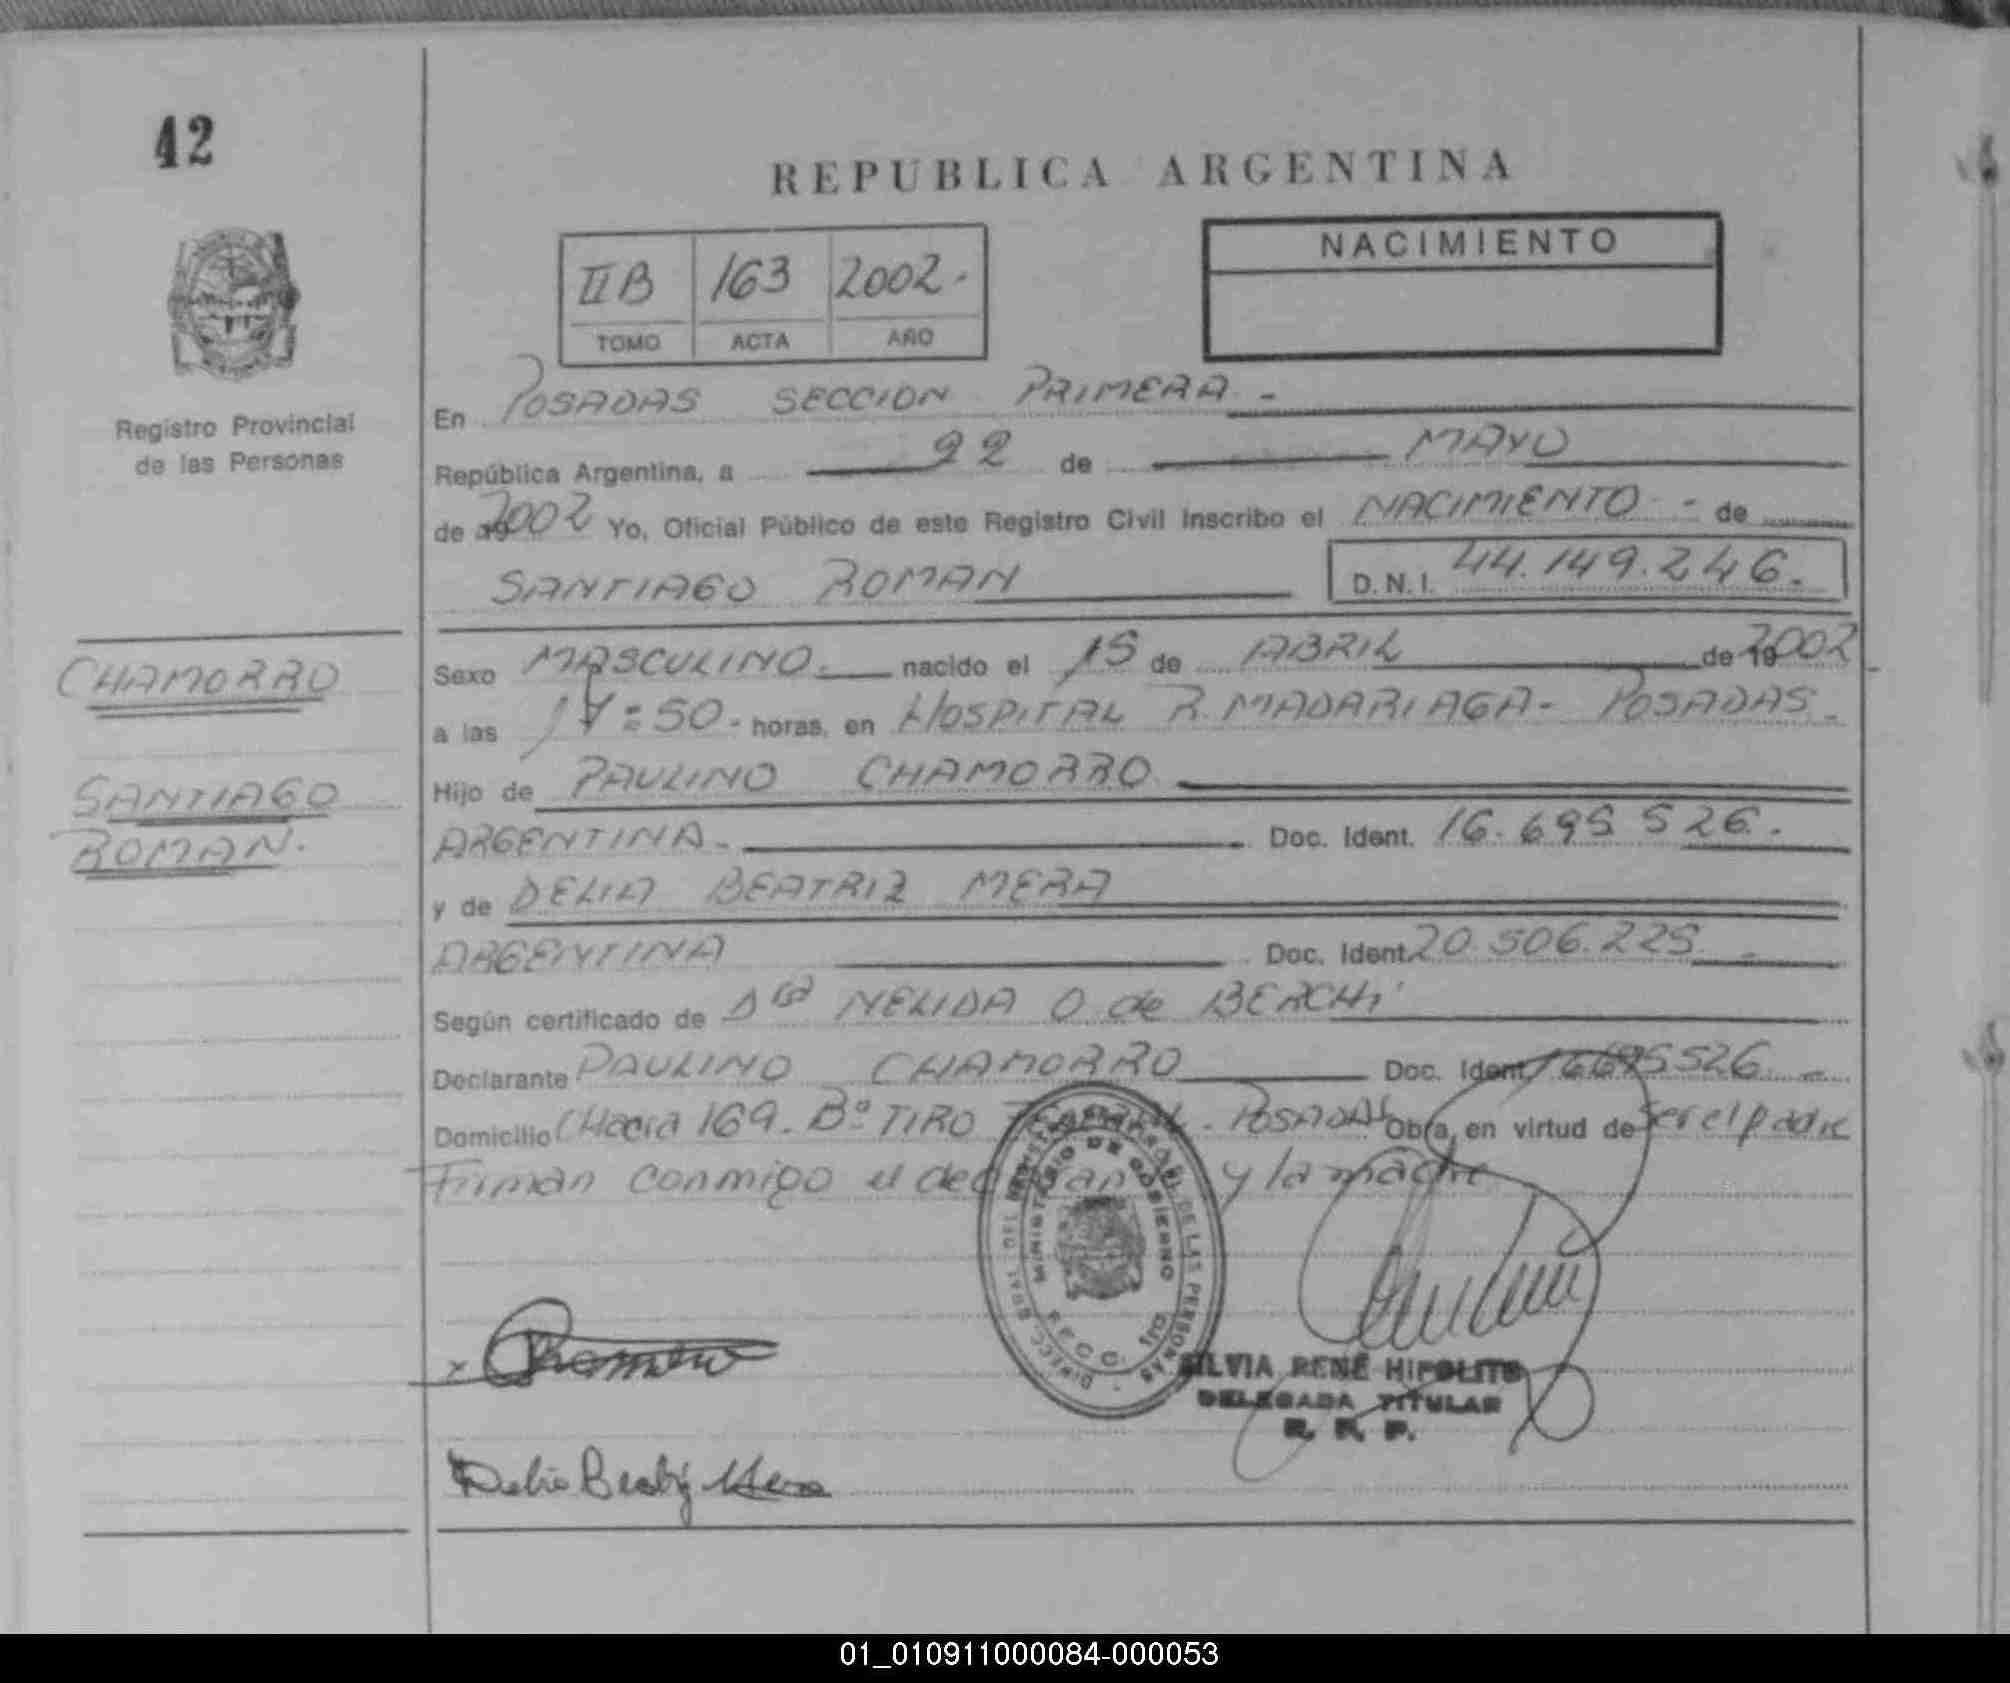 42
REPUBLICA ARGENTINA
NACIMIENTO
II B 163 2002.-
TOMO ACTA AÑO
Registro Provincial
de las Personas
En POSADAS SECCION PRIMERA.-
República Argentina, a 22 de MAYO
de 19 2002 Yo, Oficial Público de este Registro Civil inscribo el NACIMIENTO - de
SANTIAGO ROMAN D.N.I. 44.149.246.
CHAMORRO
SANTIAGO
ROMAN.
Sexo MASCULINO. nacido el 15 de ABRIL de 19 2002
a las :50- horas, en HOSPITAL R. MADARIAGA- POSADAS-
Hijo de PAULINO CHAMORRO
ARGENTINA.- Doc. Ident. 16.695.526.
y de DELIA BEATRIZ MERA
ARGENTINA Doc. Ident. 20.506.225.-
Según certificado de NELIDA O de BERCHI
Declarante PAULINO CHAMORRO Doc. Ident. 16695526.-
Domicilio CHacra 169. Bº TIRO - POSADAS Obra en virtud de ser el padre
Firman conmigo el declarante y la madre
MINISTERIO DE GOBIERNO
SILVIA RENÉ HIPOLITO
DELEGADA TITULAR
R. P. P.
Delia Beatriz Mera
01_010911000084-000053